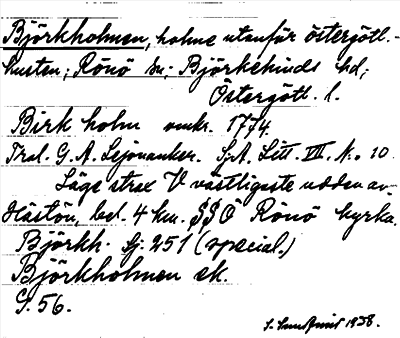 Björkholmen, holme utanför östergötl.-
kusten; Rönö sn; Björkekinds hd;
Östergötl. l.
Birk holm omkr. 1774.
Tral. G. A. Lejonanker. SjA. Litt. VII. N:o 10
Läge strax V västligaste udden av
Hästön, bel. 4 km. SSÖ Rönö kyrka.
Björkh. Gj: 251 (special.)
Björkholmen ek.
S. 56.
1938.